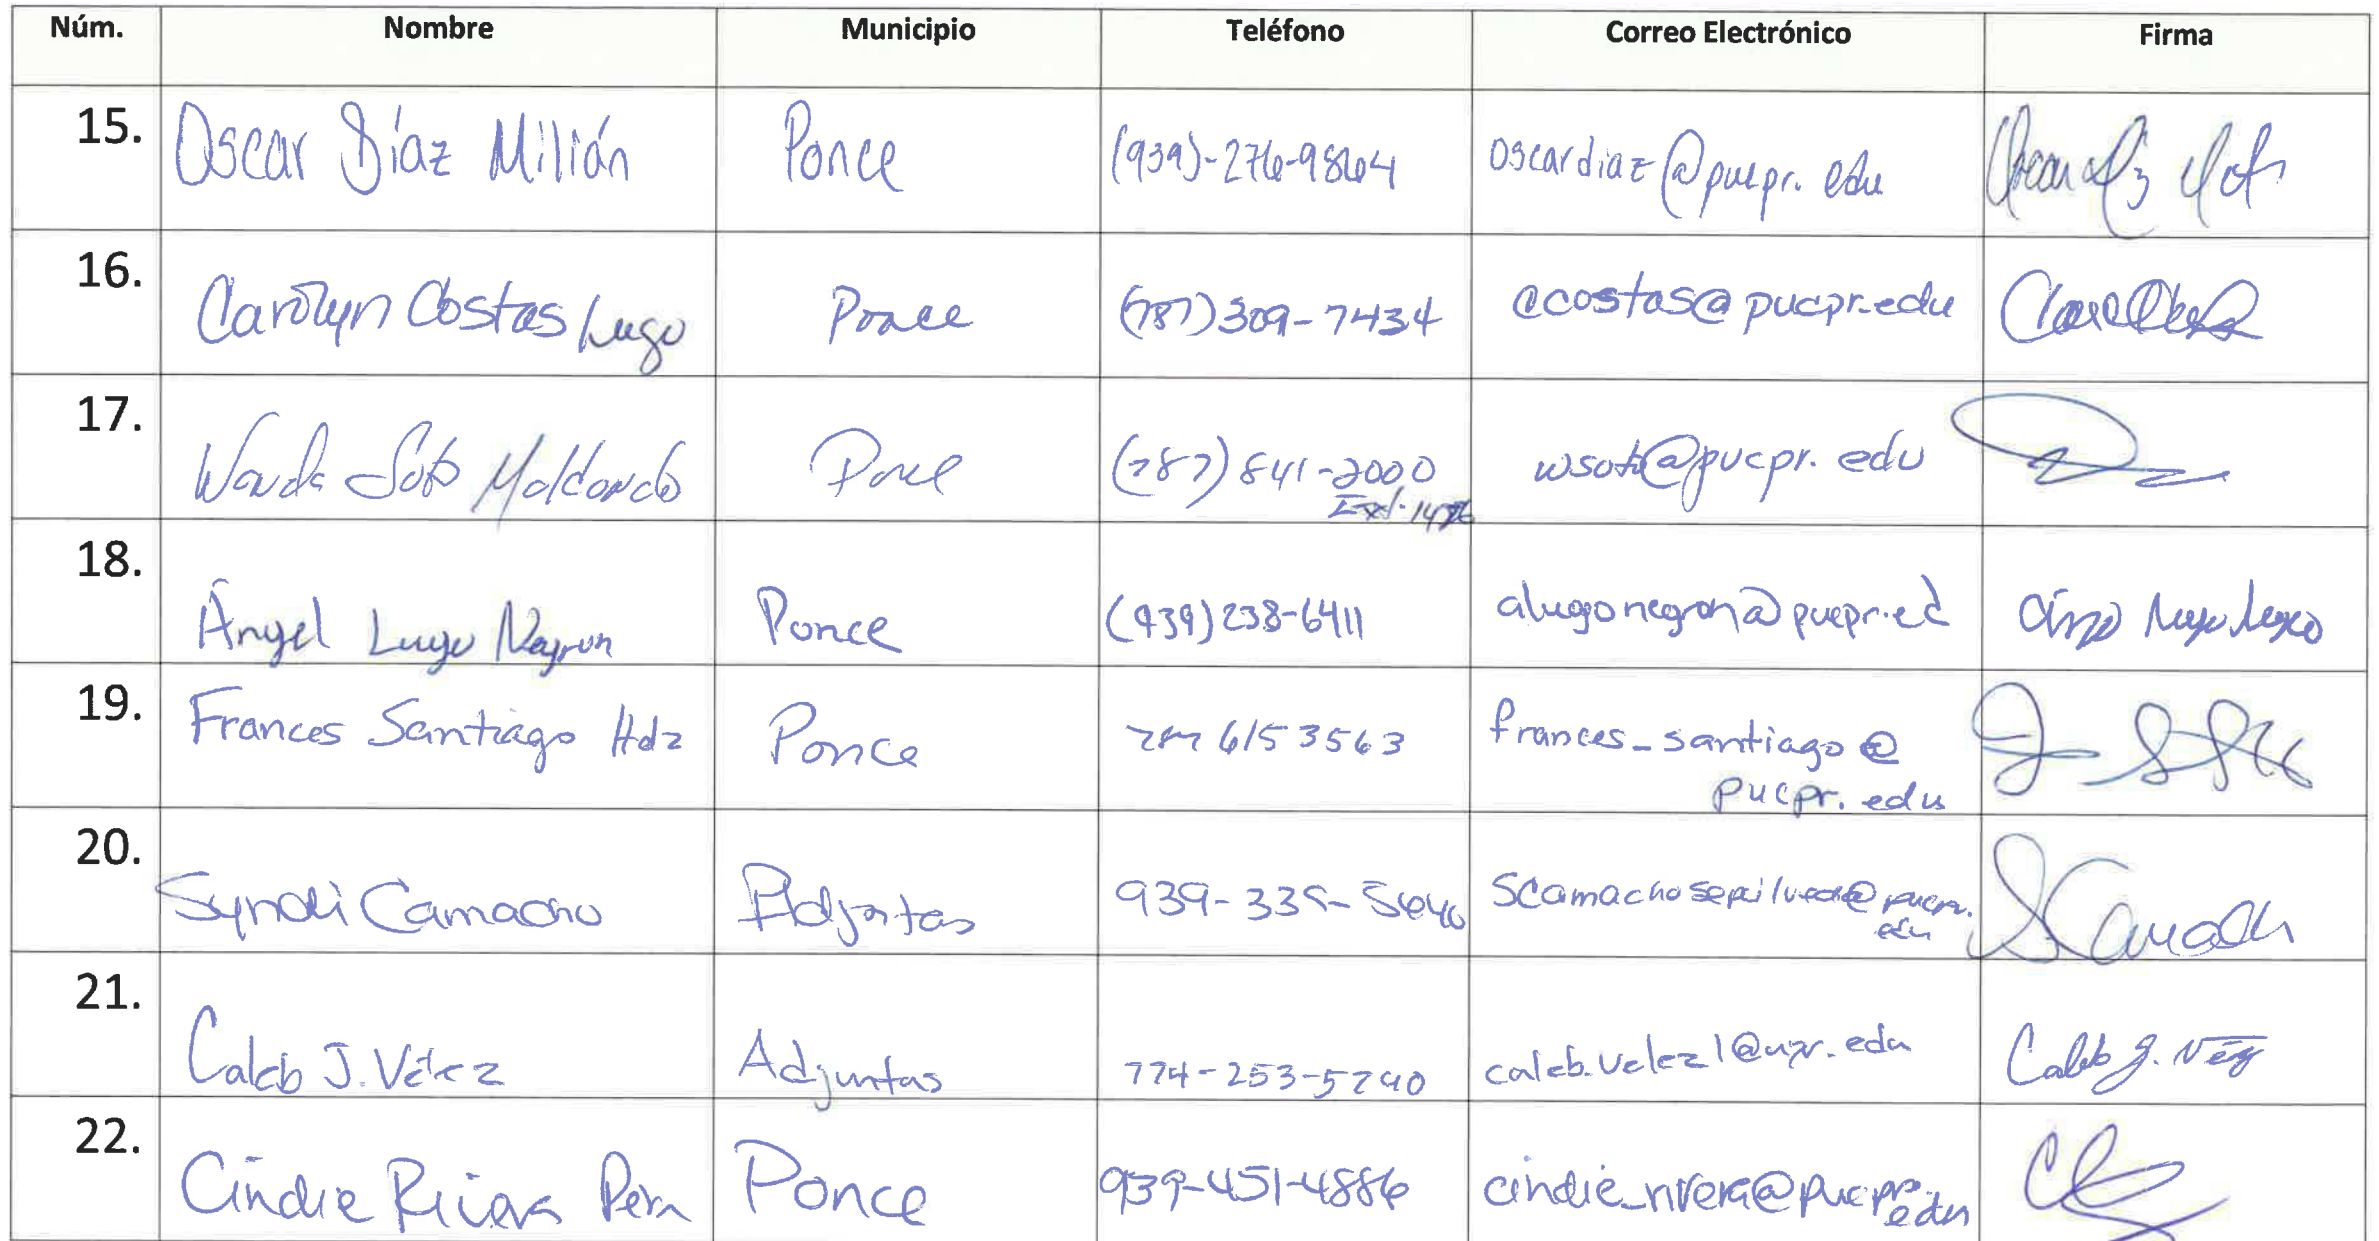 Núm. Nombre Municipio Teléfono Correo Electrónico Firma
15. Oscar Díaz Milián Ponce (939)-276-9864 oscardiaz@pucpr.edu
16. Carolyn Costas Lugo Ponce (787)309-7434 ccostas@pucpr.edu
17. Wanda Soto Maldonado Ponce (787) 841-2000 wsoto@pucpr.edu
Ext.
18. Ángel Lugo Negron Ponce (939)238-6411 alugonegron@pucpr.ed
19. Frances Santiago Hdz Ponce 787 615 3563 frances_santiago@
pucpr.edu
20. Syndi Camacho Adjuntas 939-335-5640 pucpr.
edu
21. Caleb J. Vélez Adjuntas 774-253-5740 caleb.velez1@upr.edu Caleb J. Vélez
22. Cindie Rivera Ponce 939-451-4886 cindie_rivera@pucpr.
edu